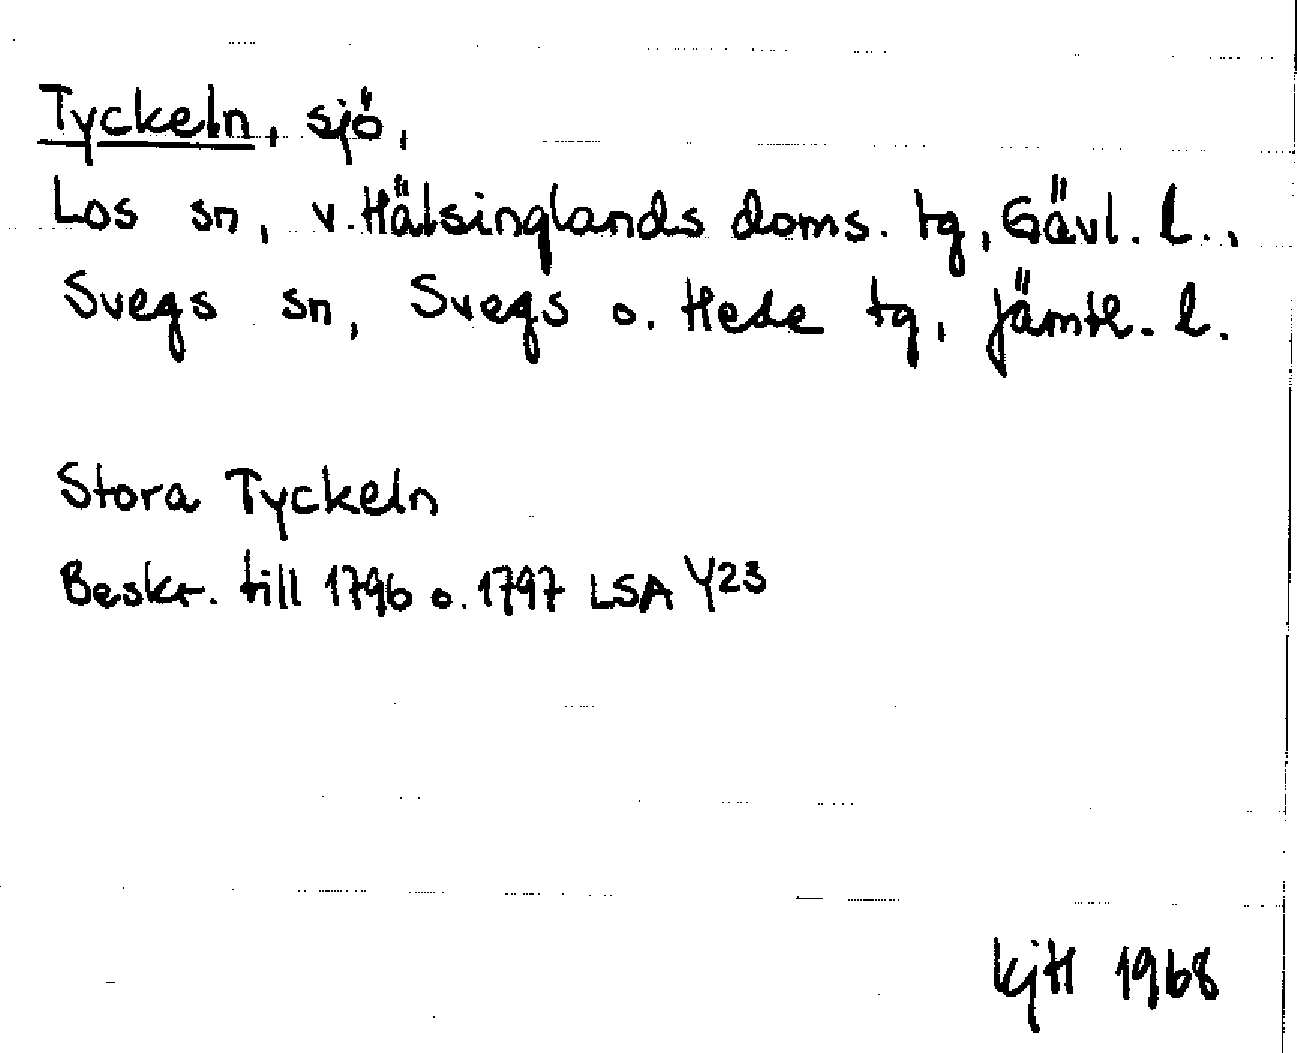 Tyckeln, sjö,
Los sn, v. Hälsinglands doms. tg, Gävl. l.,
Svegs sn, Svegs o. Hede tg, Jämtl. l.
Stora Tyckeln
Beskr. till 1796 o. 1797 LSA Y23
KjH 1968